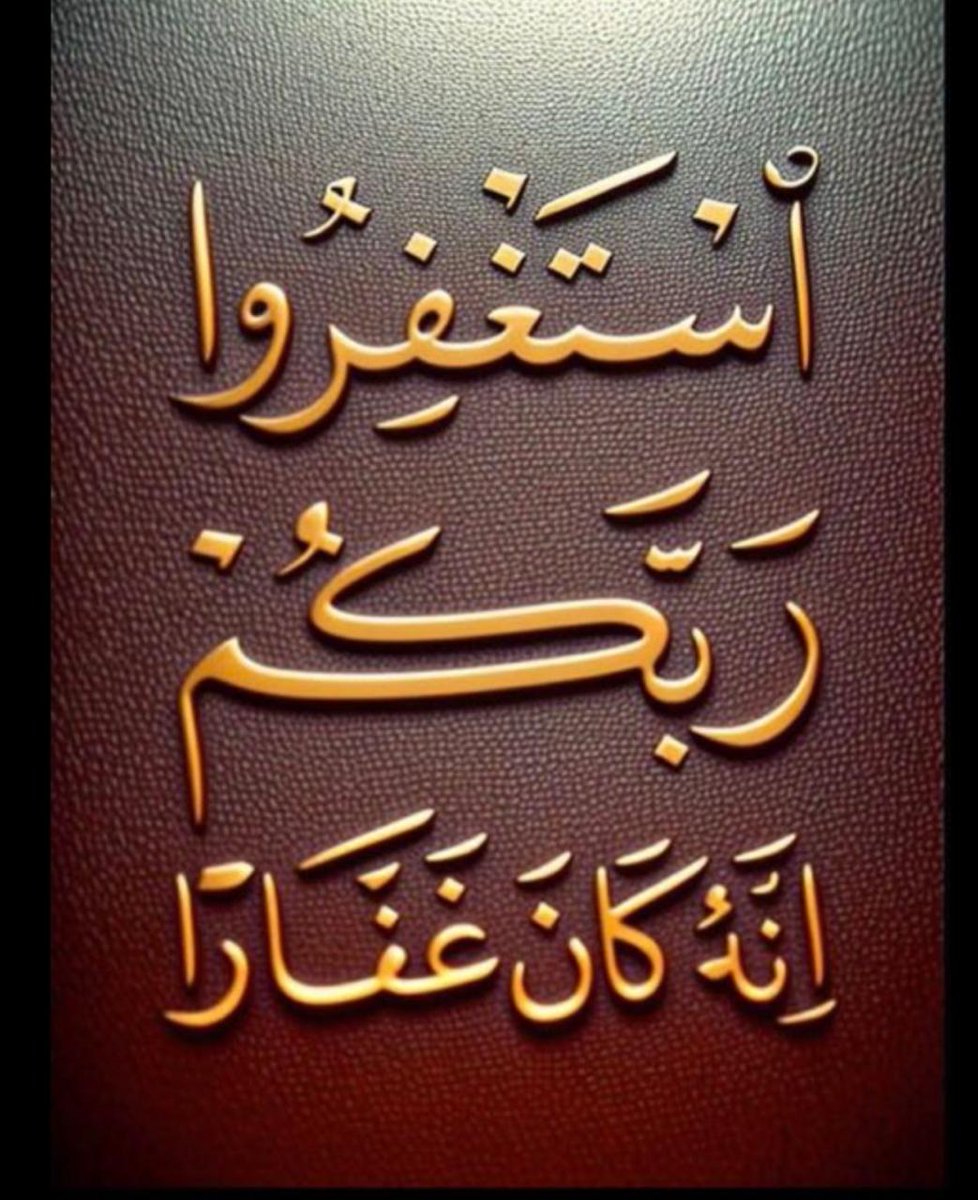 ٱسْتَغْفِرُوا
رَبَّكُمْ
اِنَّهُ كَانَ غَفَّارًا